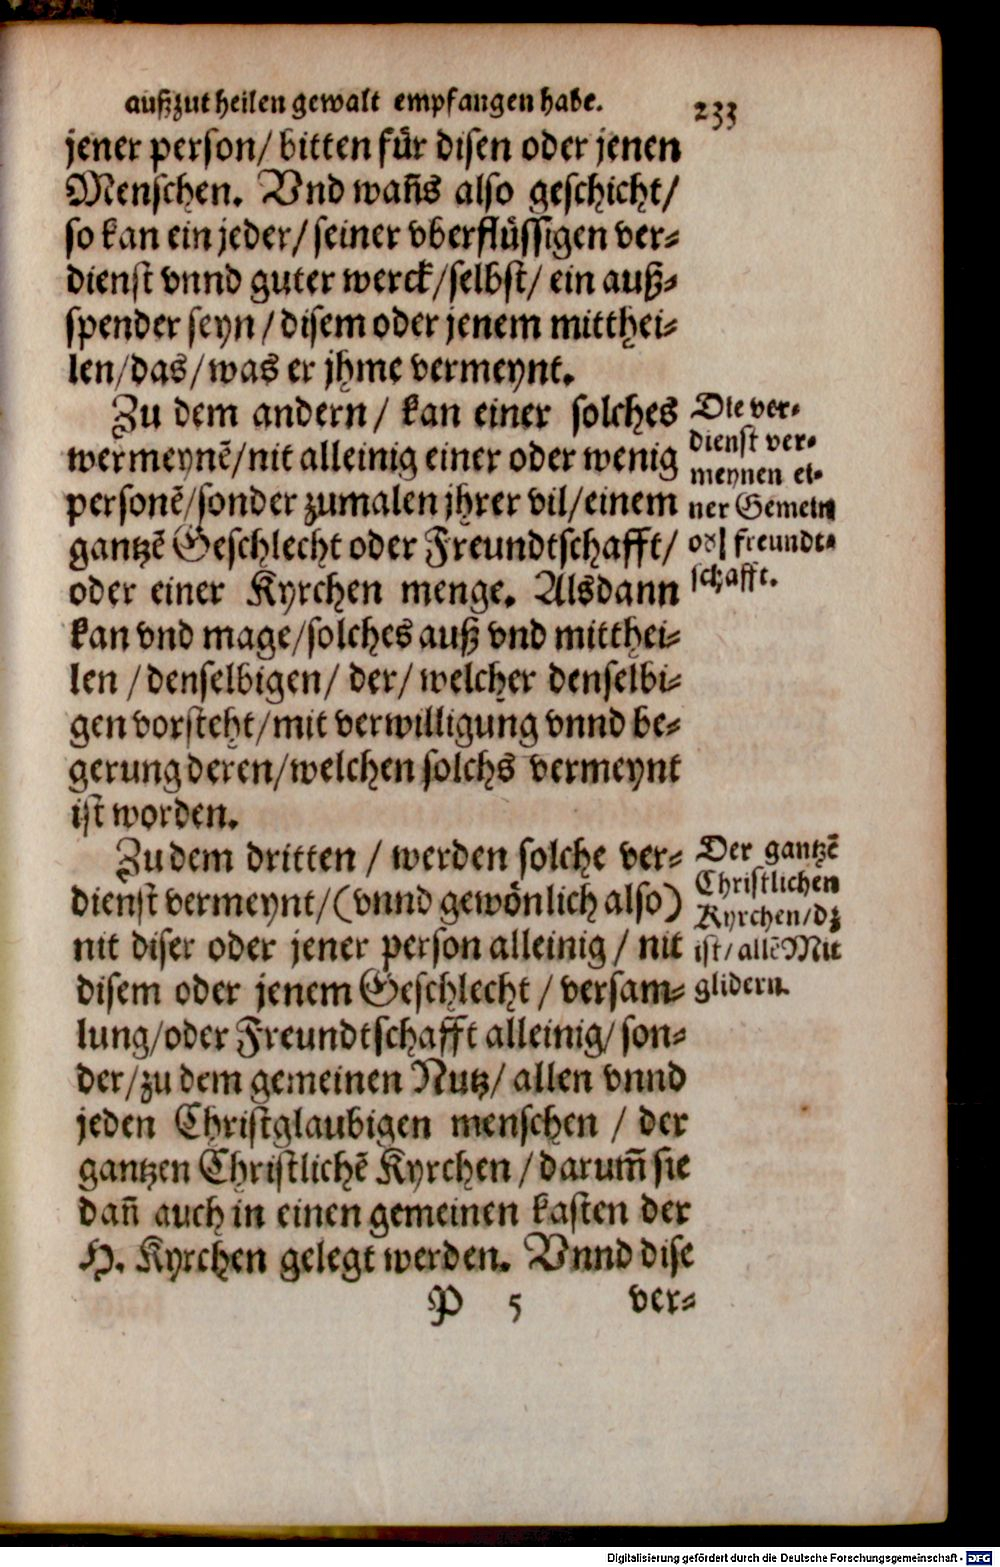 außzutheilen gewalt empfangen habe. 233
jener person/ bitten fuͤr disen oder jenen
Menschen. Vnd wañs also geschicht/
so kan ein jeder/ seiner vberfluͤssigen ver⸗
dienst vnnd guter werck/ selbst/ ein auß⸗
spender seyn/ disem oder jenem mitthei⸗
len/ das/ was er jhme vermeynt.
Zu dem andern/ kan einer solches
wermeynẽ/ nit alleinig einer oder wenig
personẽ/ sonder zumalen jhrer vil/ einem
gantzẽ Geschlecht oder Freundtschafft/
oder einer Kyrchen menge. Alsdann
kan vnd mage/ solches auß vnd mitthei⸗
len/ denselbigen/ der/ welcher denselbi⸗
gen vorsteht/ mit verwilligung vnnd be⸗
gerung deren/ welchen solchs vermeynt
ist worden.
Die ver⸗
dienst ver⸗
meynen ei⸗
ner Gemein
od' freundt⸗
schafft.
Zu dem dritten/ werden solche ver⸗
dienst vermeynt/ (vnnd gewoͤnlich also)
nit diser oder jener person alleinig/ nit
disem oder jenem Geschlecht/ versam⸗
lung/ oder Freundtschafft alleinig/ son⸗
der/ zu dem gemeinen Nutz/ allen vnnd
jeden Christglaubigen menschen/ der
gantzen Christlichẽ Kyrchen/ darum̃ sie
dañ auch in einen gemeinen kasten der
H. Kyrchen gelegt werden. Vnnd dise
Der gantzẽ
Christlichen
Kyrchen/ dz
ist/ allẽ Mit
glidern.
P 5 ver⸗
Digitalisierung gefördert durch die Deutsche Forschungsgemeinschaft - DFG